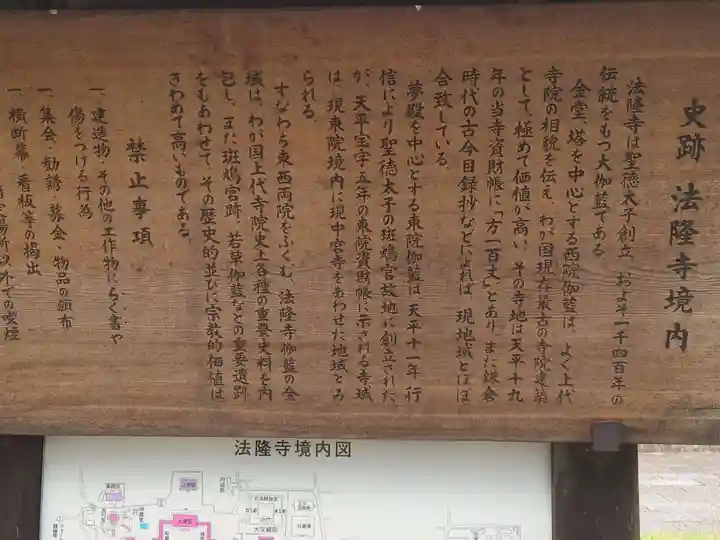 史跡 法隆寺境内
法隆寺は聖徳太子創立、およそ一千四百年の
伝統をもつ大伽藍である
金堂、塔を中心とする西院伽藍は、よく上代
寺院の相貌を伝え、わが国現存最古の寺院建築
として、極めて価値が高い その寺地は天平十九
年の当寺資財帳に「方一百丈」とあり、また鎌倉
時代の古今目録抄などによれば、現地域とほぼ
合致している。
夢殿を中心とする東院伽藍は、天平十一年、行
信により聖徳太子の斑鳩宮故地に創立された
が、天平宝字五年の東院資財帳に示される寺域
は、現東院境内に現中宮寺をあわせた地域とみ
られる。
すなわち東西両院をふくむ、法隆寺伽藍の全
域は、わが国上代寺院史上各種の重要史料を内
包し、また斑鳩宮跡、若草伽藍などの重要遺跡
をもあわせて、その歴史的並びに宗教的価値は
きわめて高いものである。
禁止事項
一、建造物・その他の工作物にらく書や
傷をつける行為
一、集会・勧誘・募金・物品の頒布
一、横断幕・看板等の掲出
場所以外での喫煙
法隆寺境内図